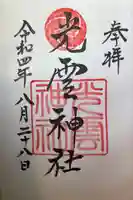 奉拝
光雲神社
令和四年八月二十八日